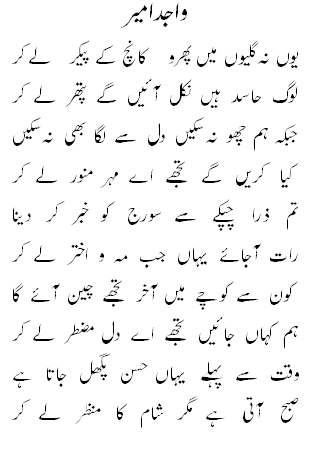 واجد امیر
یوں نہ گلیوں میں پھرو کانچ کے پیکر لے کر
لوگ حاسد ہیں نکل آئیں گے پتھر لے کر
جبکہ ہم چھو نہ سکیں دل سے لگا بھی نہ سکیں
کیا کریں گے تجھے اے مہر منور لے کر
تم ذرا چپکے سے سورج کو خبر کر دینا
رات آجائے یہاں جب مہ و اختر لے کر
کون سے کوچے میں آخر تجھے چین آئے گا
ہم کہاں جائیں تجھے اے دل مضطر لے کر
وقت سے پہلے یہاں حسن پگھل جاتا ہے
صبح آتی ہے مگر شام کا منظر لے کر